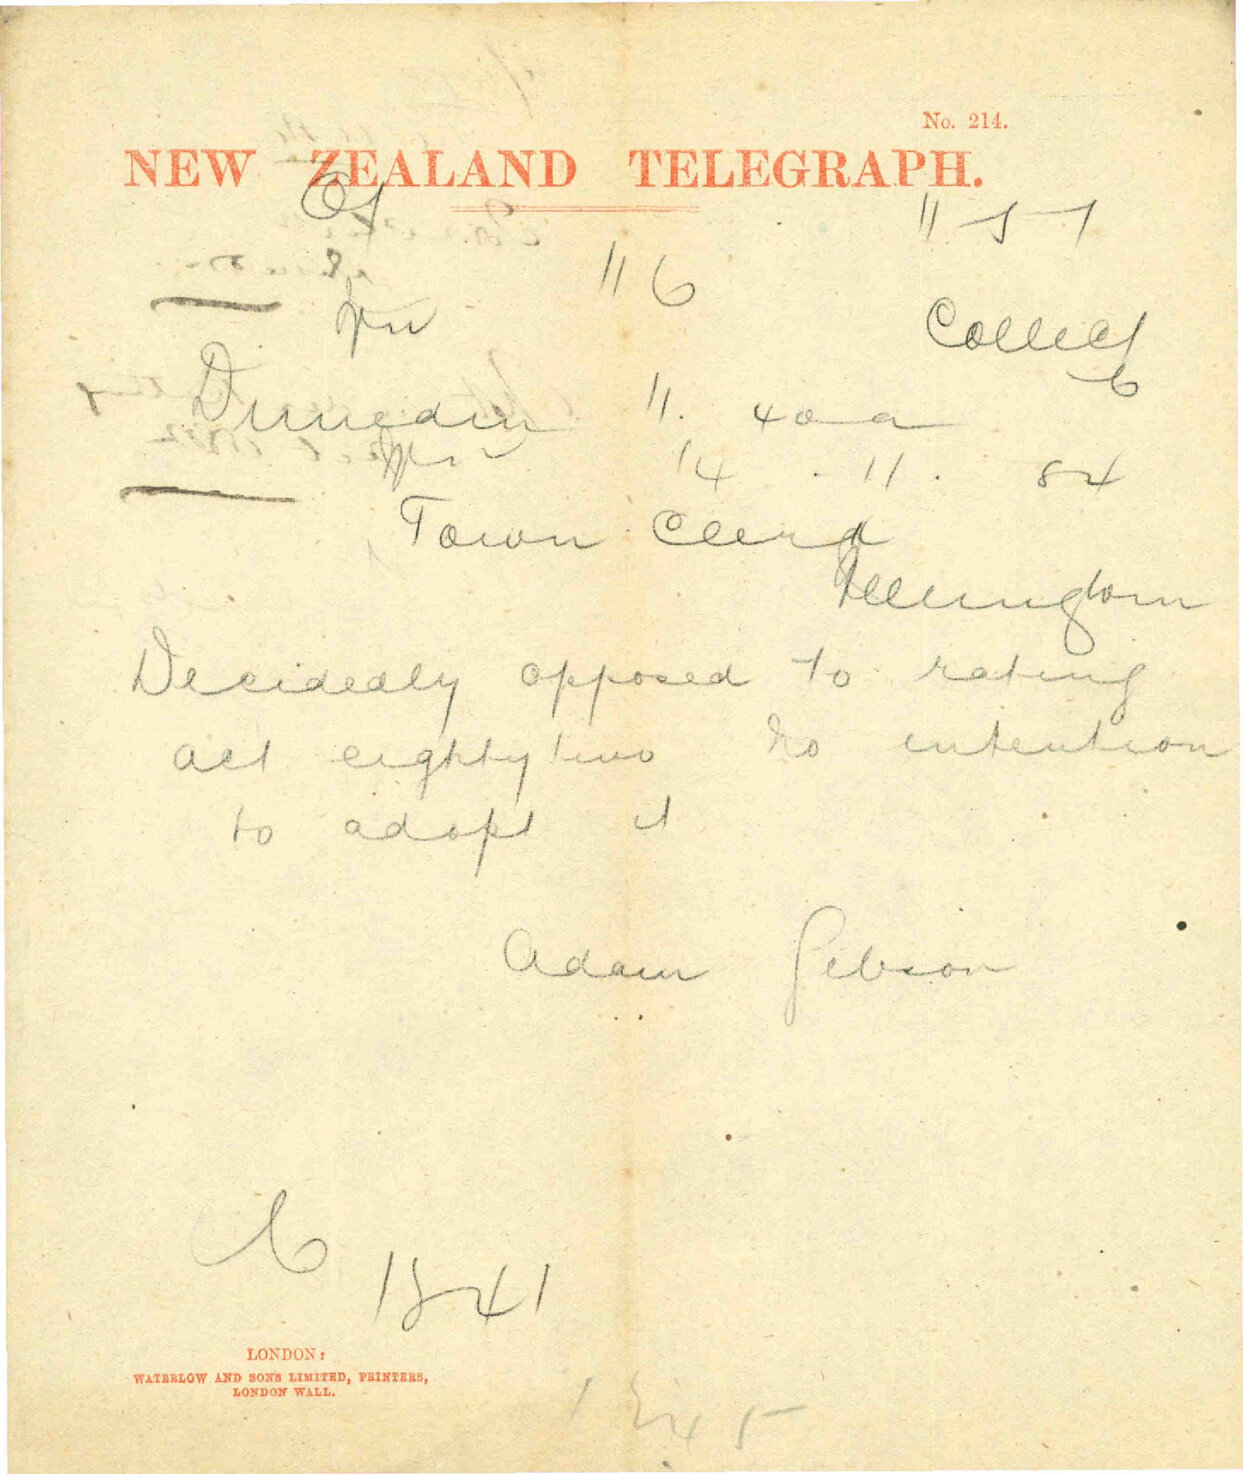 No. 214.
NEW ZEALAND TELEGRAPH.
116
Collect
Dunedin 11. 40 a
14 . 11. 84
Town Clerk
Wellington
Decidedly opposed to rating
act eighty two no intention
to adopt it
Adam Gibson
LONDON:
WATERLOW AND SONS LIMITED, PRINTERS,
LONDON WALL.